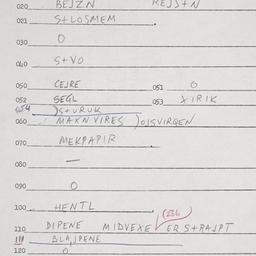 020 BEJZN REJS+N
021 S+LOSMEM
030 O
040 S+VO
050 CEJRE 051 O
052 SEGL 053 XIRIK
054 S+URUK
060 MAXNVIRES ) OJSVIRQEN
070 MEKPAPIR
080 —
090 O
100 HENTL
110 DIPENE MIDVEXE ERS+RAJPT
111 BLAJPENE
120 O